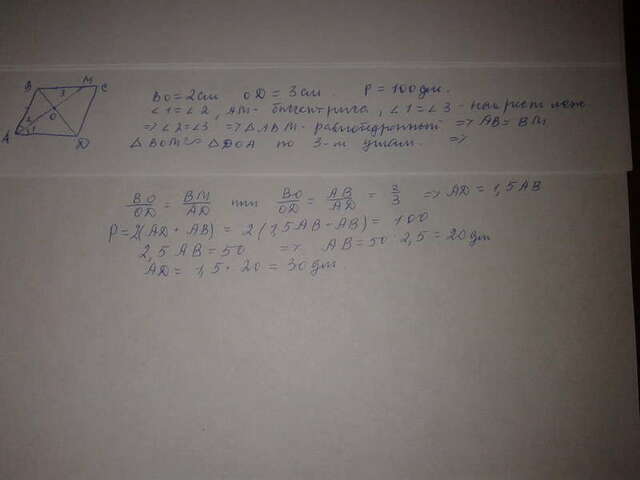 B M C
3
2 O
A 1 D
BO = 2 см OD = 3 см. P = 100 дм.
∠1 = ∠2, AM - биссектриса, ∠1 = ∠3 - накрест леж
=> ∠2 = ∠3 => △ABM - равнобедренный => AB = BM
△BOM ∾ △DOA по 3-м углам. =>
BO/OD = BM/AD или BO/OD = AB/AD = 2/3 => AD = 1,5 AB
P = 2(AD + AB) = 2(1,5AB - AB) = 100
2,5 AB = 50 => AB = 50 : 2,5 = 20 дм
AD = 1,5 · 20 = 30 дм